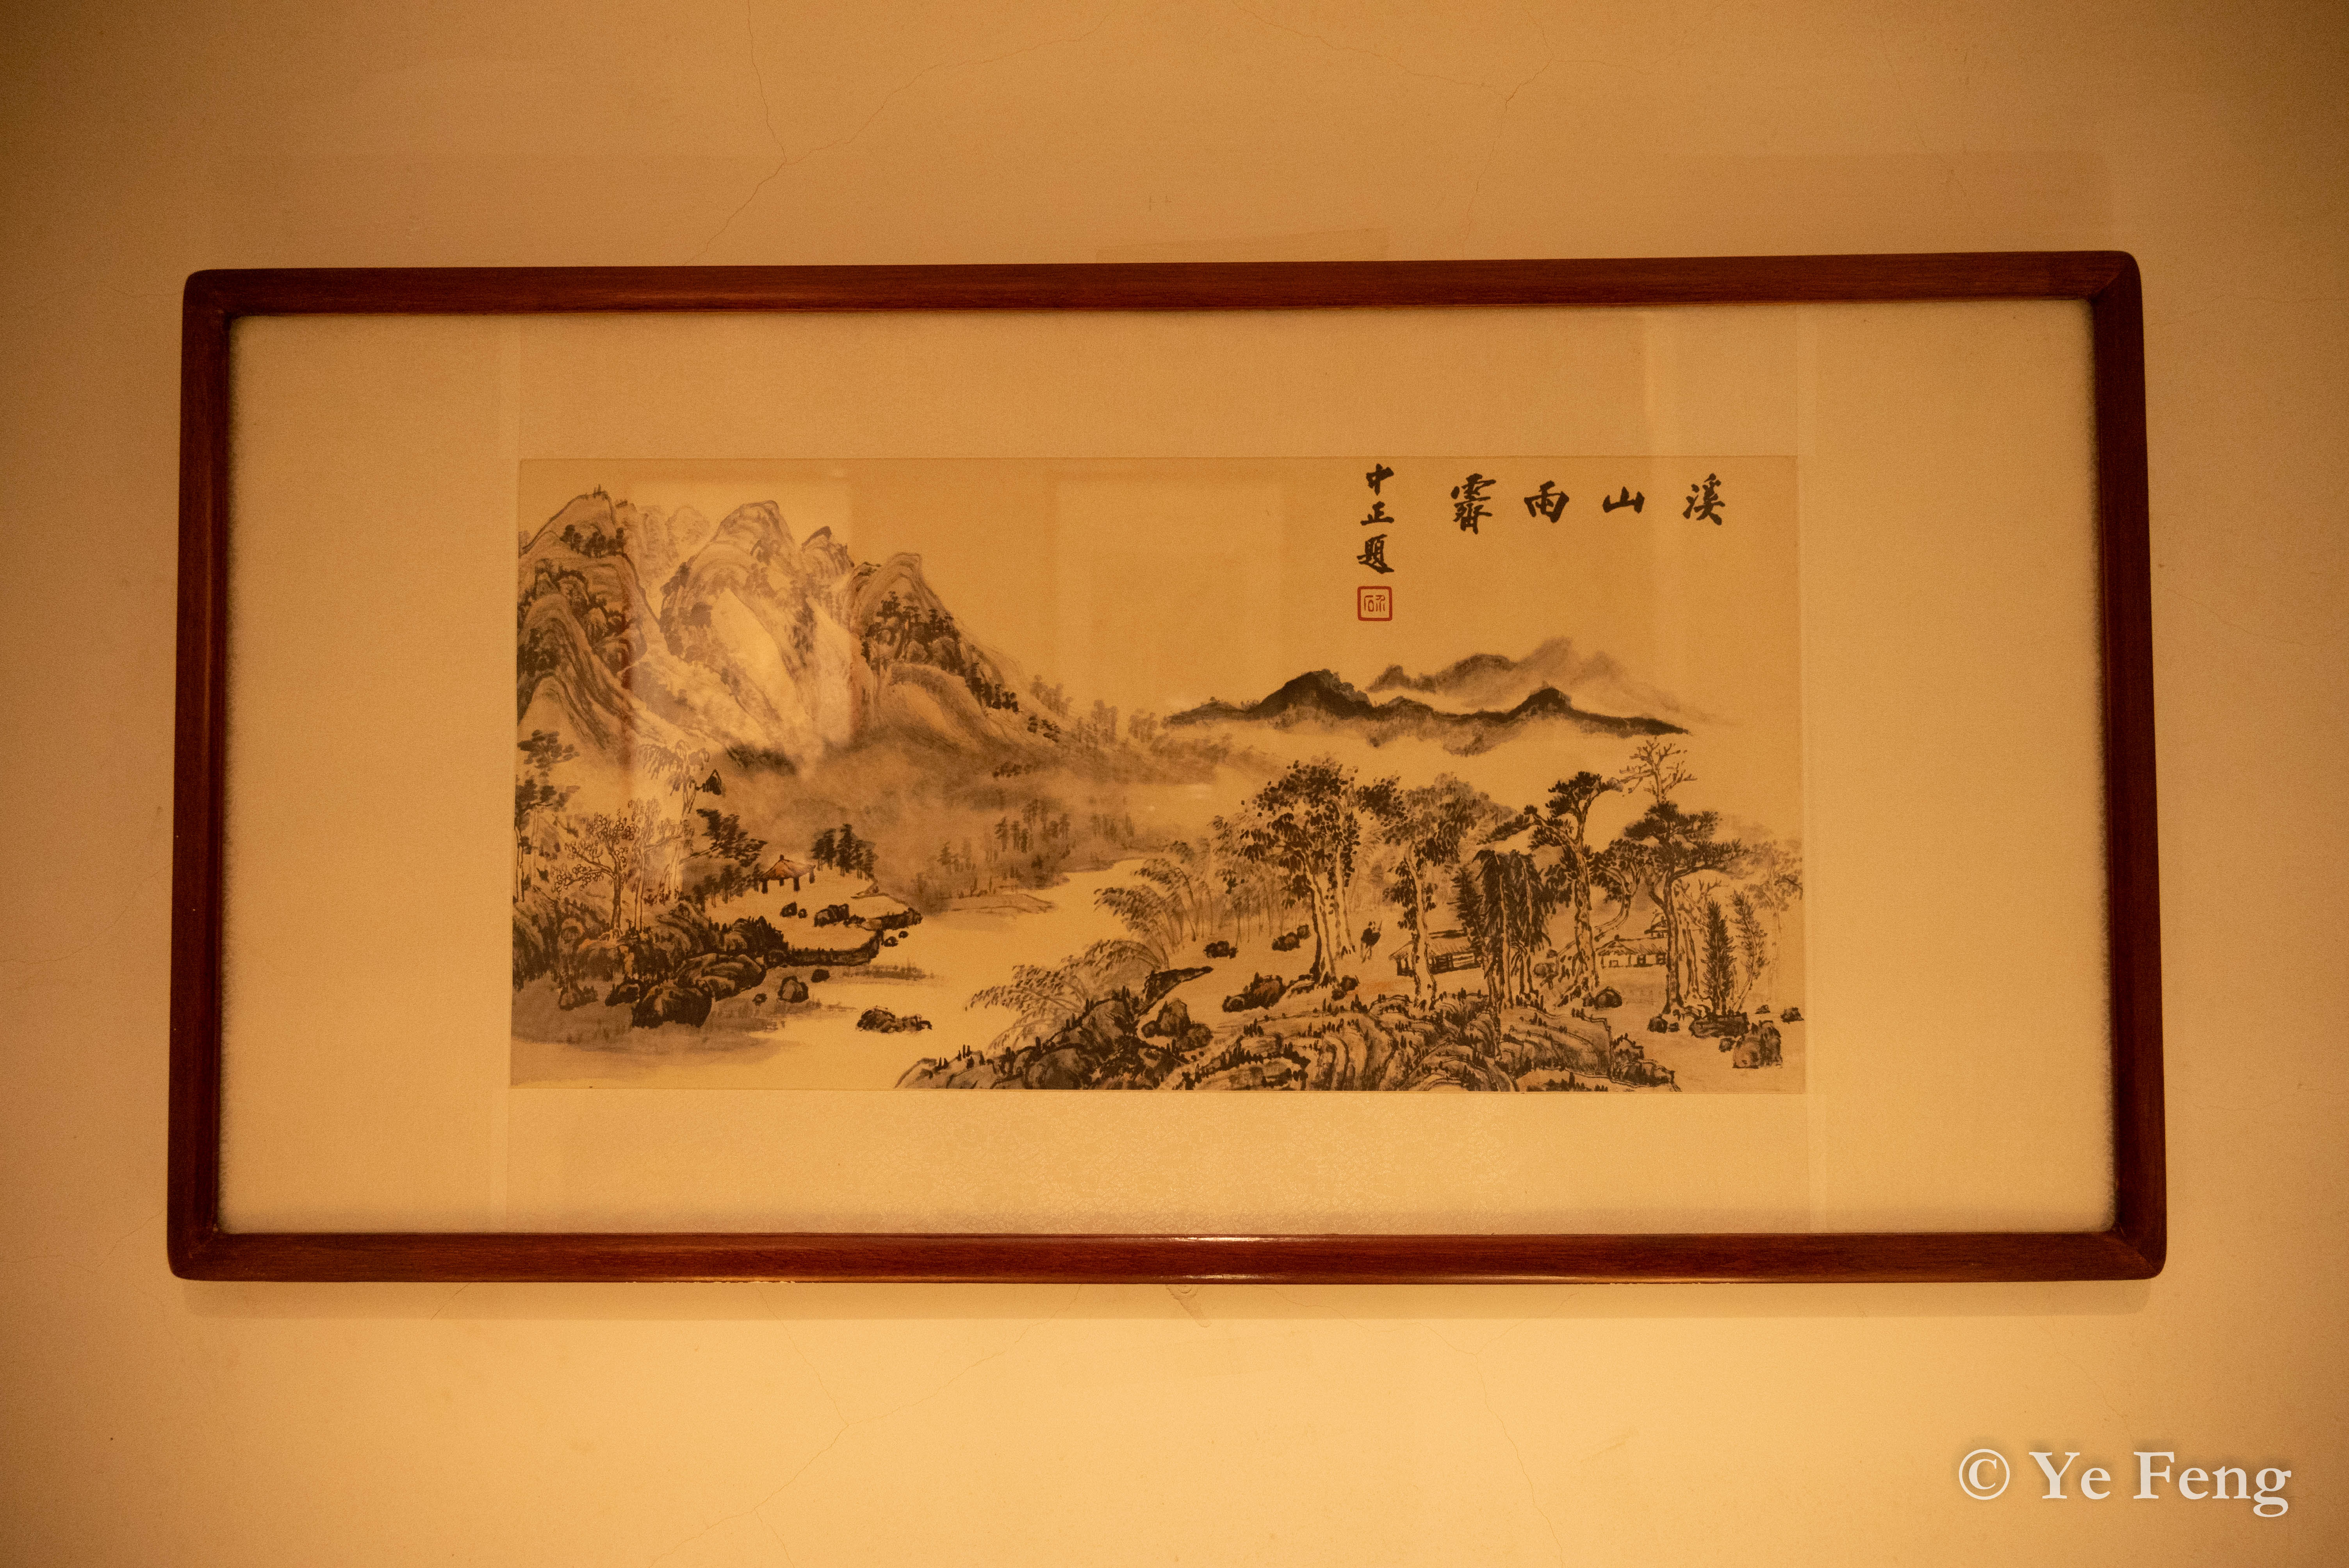 溪山雨霽
中正題
© Ye Feng